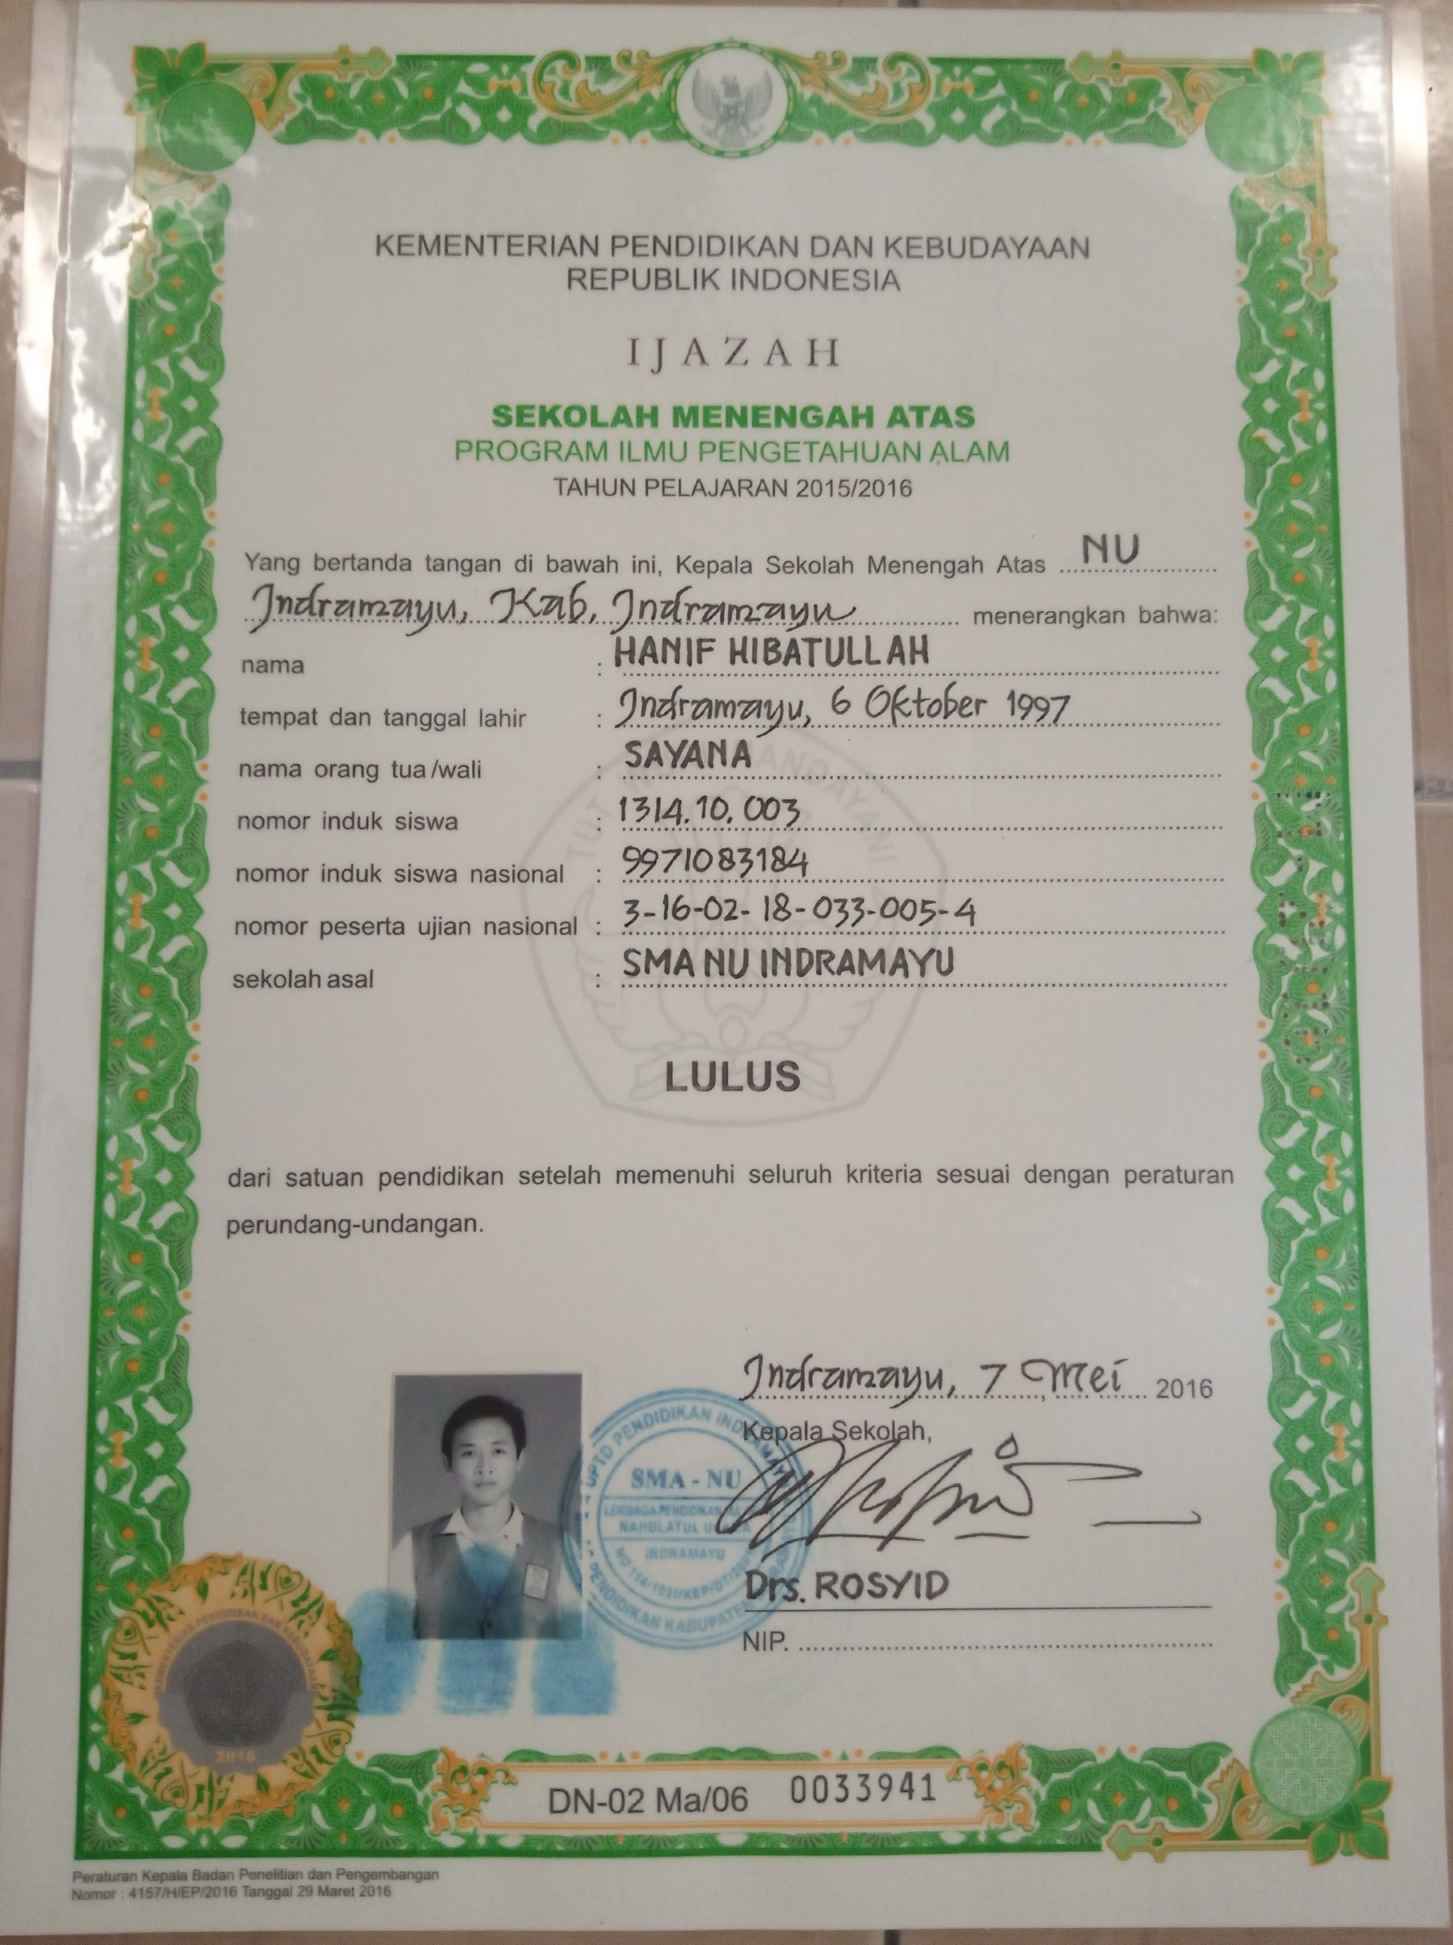 KEMENTERIAN PENDIDIKAN DAN KEBUDAYAAN
REPUBLIK INDONESIA
IJAZAH
SEKOLAH MENENGAH ATAS
PROGRAM ILMU PENGETAHUAN ALAM
TAHUN PELAJARAN 2015/2016
Yang bertanda tangan di bawah ini, Kepala Sekolah Menengah Atas NU
Indramayu, Kab. Indramayu menerangkan bahwa:
nama : HANIF HIBATULLAH
tempat dan tanggal lahir : Indramayu, 6 Oktober 1997
nama orang tua/wali : SAYANA
nomor induk siswa : 1314.10.003
nomor induk siswa nasional : 9971083184
nomor peserta ujian nasional : 3-16-02-18-033-005-4
sekolah asal : SMA NU INDRAMAYU
LULUS
dari satuan pendidikan setelah memenuhi seluruh kriteria sesuai dengan peraturan
perundang-undangan.
Indramayu, 7 Mei 2016
Kepala Sekolah,
SMA - NU
INDRAMAYU
Drs. ROSYID
NIP.
2016
DN-02 Ma/06 0033941
Peraturan Kepala Badan Penelitian dan Pengembangan
Nomor : 4157/H/EP/2016 Tanggal 29 Maret 2016